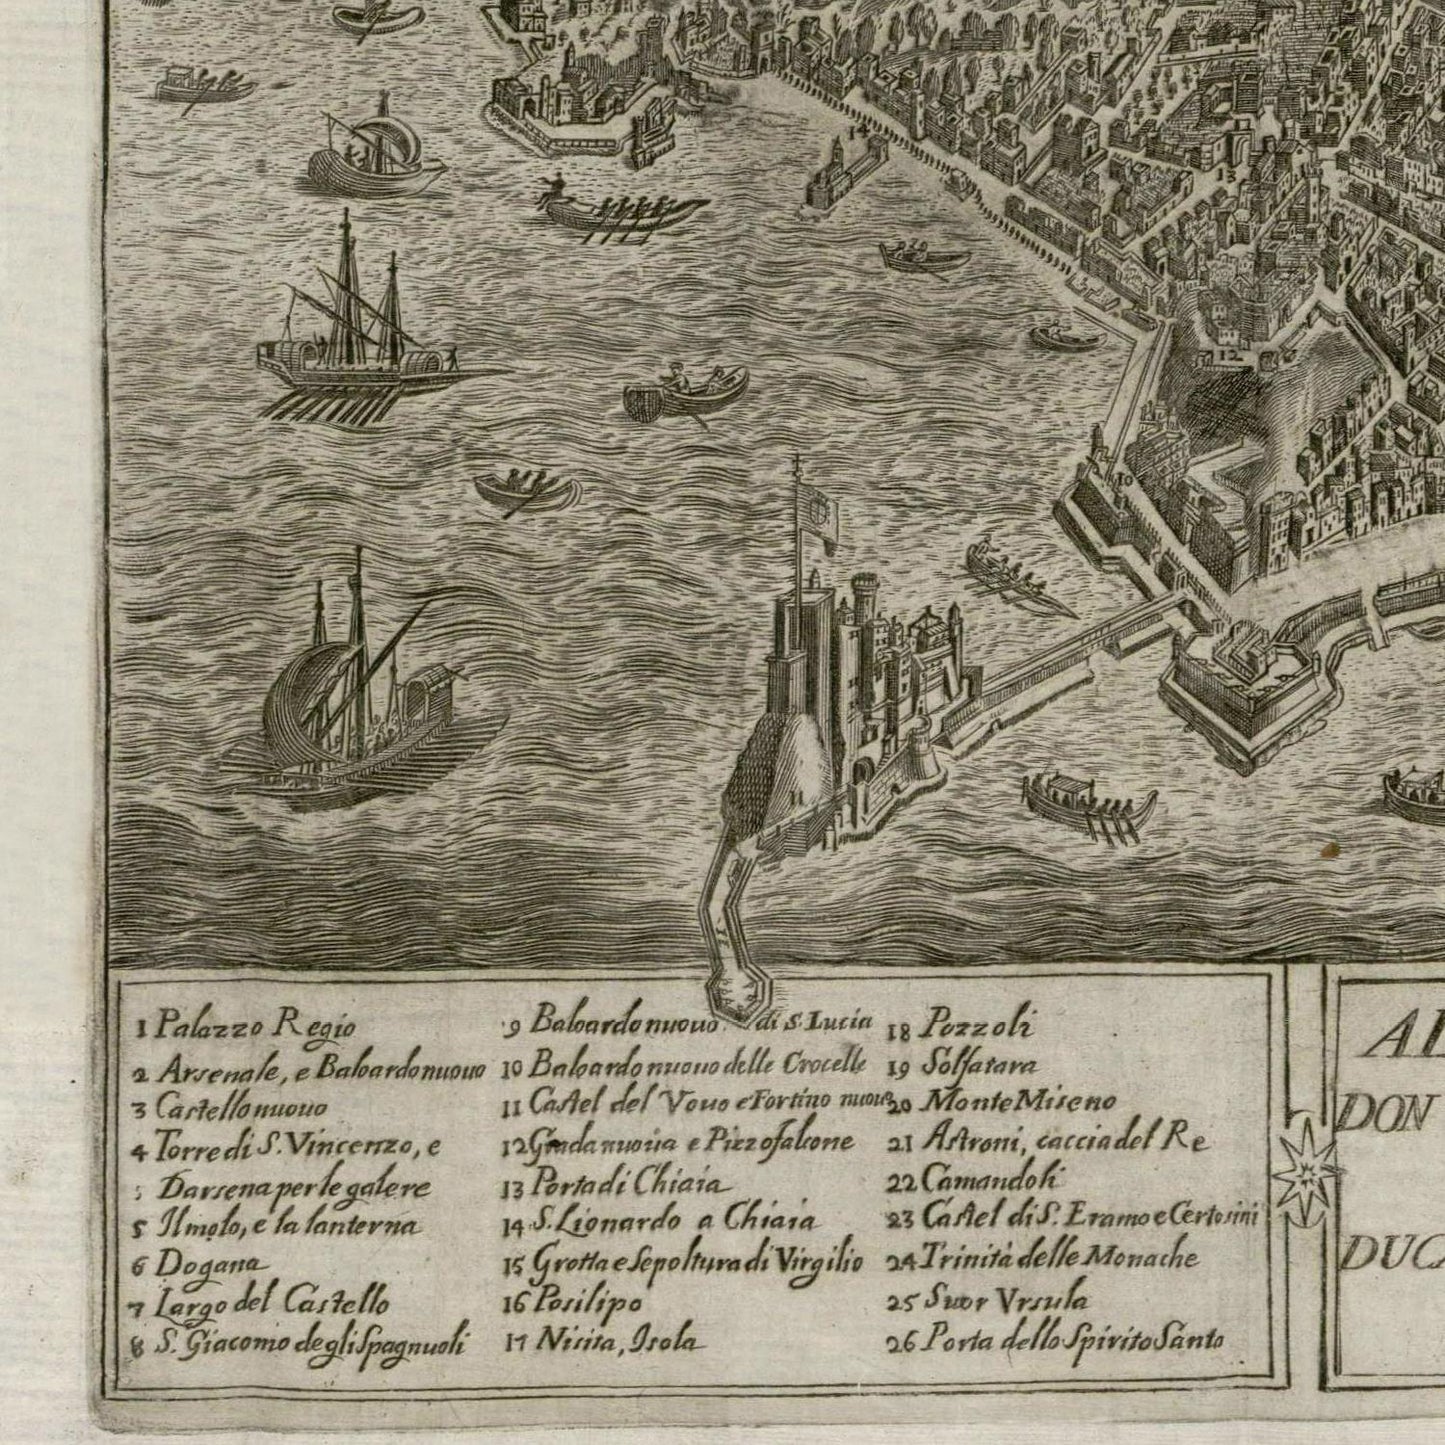 14
13
12
10
11
1 Palazzo Regio
2 Arsenale, e Baloardo nuouo
3 Castello nuouo
4 Torre di S. Vincenzo, e
Darsena per le galere
5 Il molo, e la lanterna
6 Dogana
7 Largo del Castello
8 S. Giacomo degli Spagnuoli
9 Baloardo nuouo di S. Lucia
10 Baloardo nuouo delle Crocelle
11 Castel del Vouo e Fortino nuouo
12 nuoua e Pizzofalcone
13 Porta di Chiaia
14 S. Lionardo a Chiaia
15 Grotta e Sepoltura di Virgilio
16 Posilipo
17 Nisita, Isola
18 Pozzoli
19 Solfatara
20 Monte Miseno
21 Astroni, caccia del Re
22 Camandoli
23 Castel di S. Eramo e Certosini
24 Trinità delle Monache
25 Suor Vrsula
26 Porta dello Spirito Santo
AL
DON
DUCA